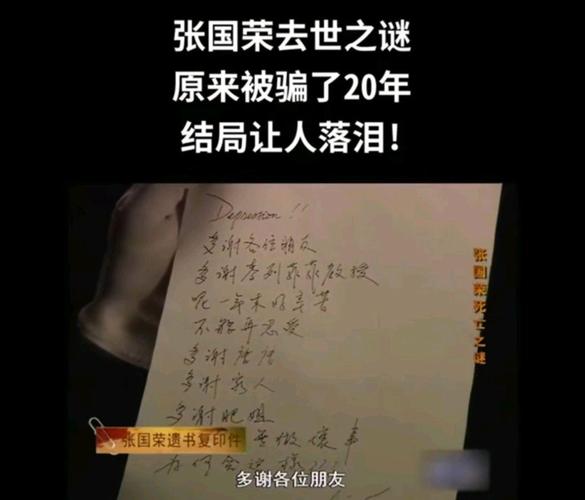 张国荣去世之谜
原来被骗了20年
结局让人落泪！
Depression！！
多谢各位朋友
多谢李列菲菲教授
呢一年来好辛苦
不能再忍受
多谢唐唐
多谢家人
多谢肥姐
无做坏事
为何会这样？！
张国荣死亡之谜
张国荣遗书复印件
多谢各位朋友